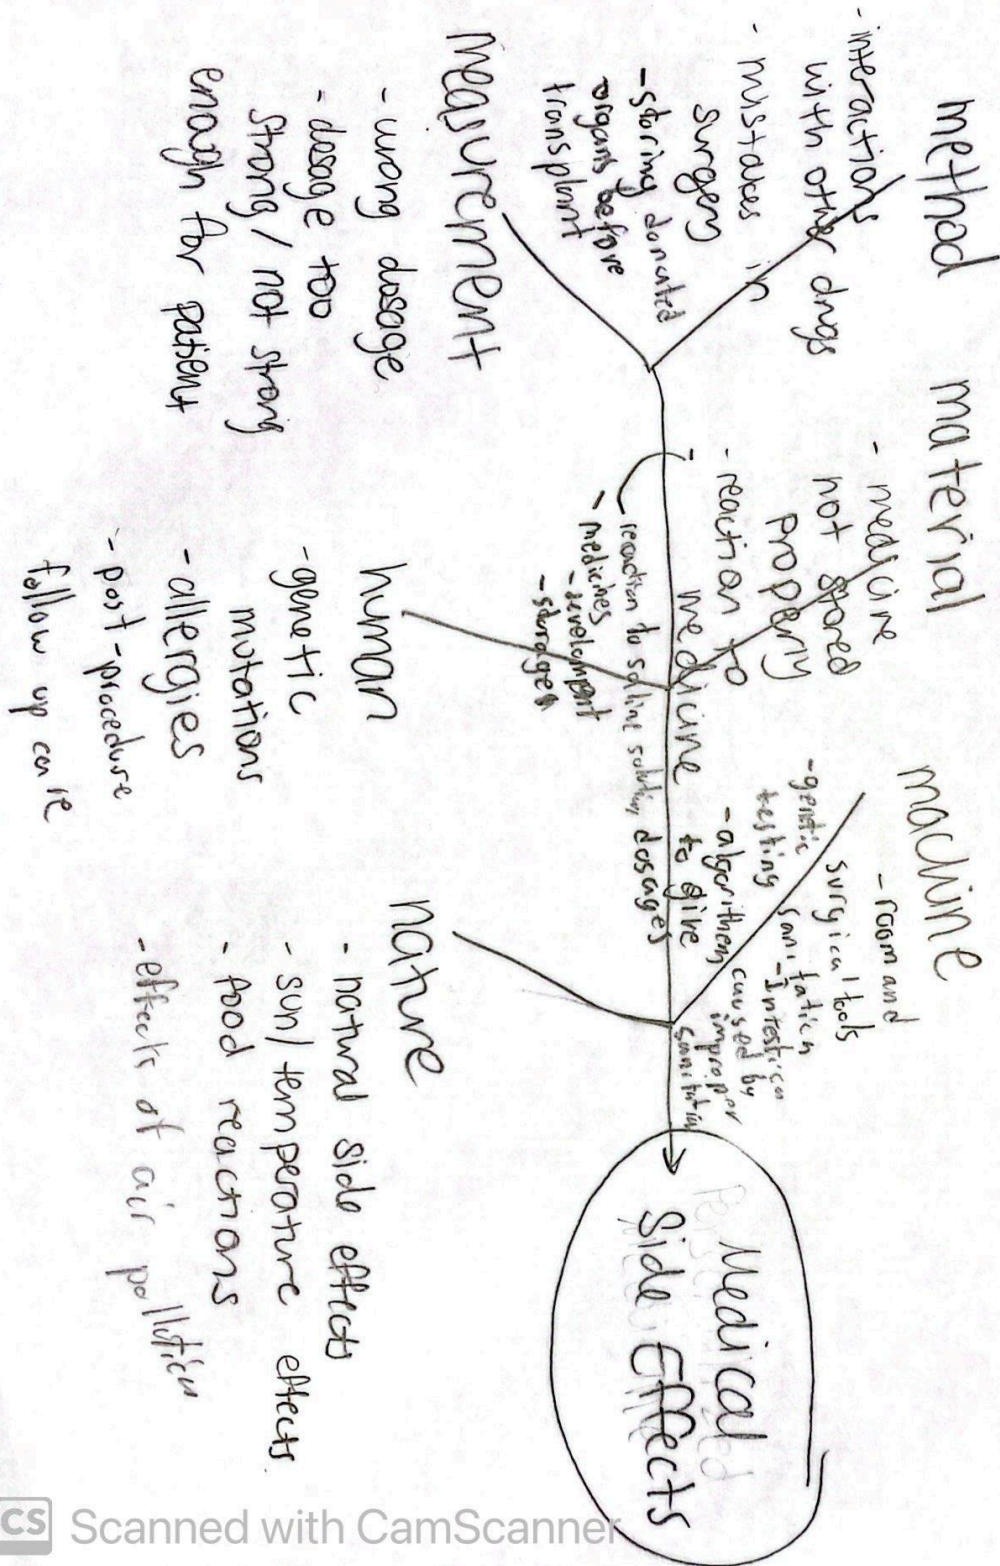 method
- interactions
with other drugs
- mistakes in
surgery
- storing donated
organs before
transplant
material
- medicine
not stored
properly
- reaction to
medicine
reaction to saline solution
- medicines
- development
- storages
machine
- room and
surgical tools
sanitation
- genetic
testing
- algorithem
to give
dosages
caused by
improper
measurement
- wrong dosage
- dosage too
strong / not strong
enough for patient
human
- genetic
mutations
- allergies
- post-procedure
follow up care
nature
- natural side effects
- sun/temperature effects
- food reactions
- effects of air pollution
Medical
Side Effects
CS Scanned with CamScanner